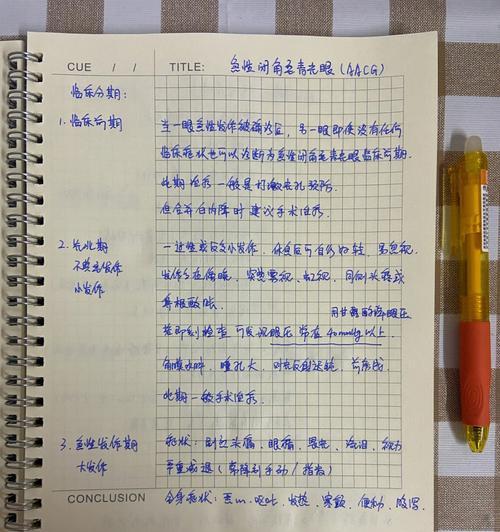 CUE / /
TITLE: 急性闭角型青光眼 (AACG)
临床分期:
1. 临床前期
当一眼急性发作被确诊后, 另一眼即使没有任何
临床症状也可以诊断为急性闭角型青光眼临床前期.
此期治疗一般是打激光孔预防.
但合并白内障时建议手术治疗.
2. 先兆期
一过性或反复小发作, 休息后可自行好转, 易忽视.
不典型发作
发作多在傍晚, 突感雾视、虹视, 同侧头疼或
小发作
鼻根酸胀.
用甘露醇降眼压
若即刻检查可发现眼压常在40mmHg以上
角膜水肿, 瞳孔大, 对光反射迟钝, 前房浅
此期一般手术治疗.
3. 急性发作期
症状: 剧烈头痛、眼痛、畏光、流泪、视力
大发作
严重减退 (常降到手动/指数)
CONCLUSION
全身症状: 恶心、呕吐、发热、寒颤、便秘、腹泻.